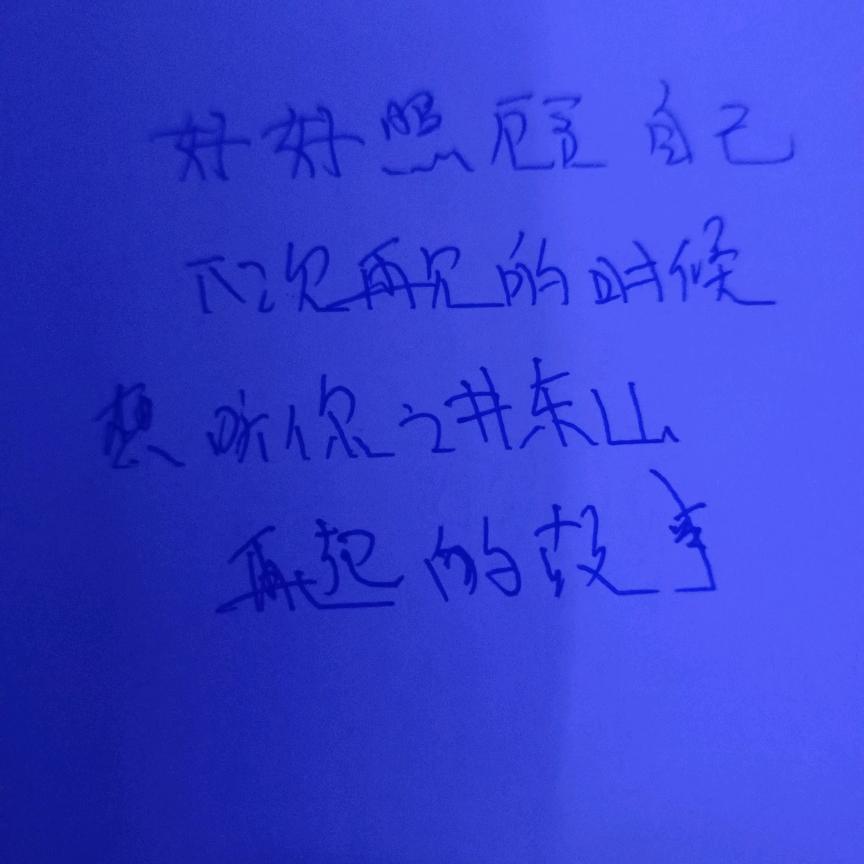 好好照顾自己
下次再见的时候
想听你讲东山
再起的故事